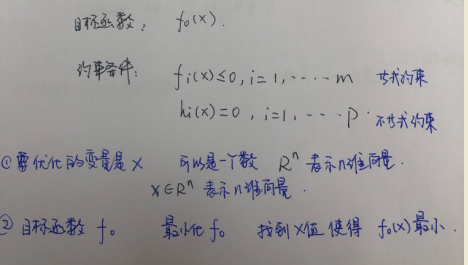 目标函数: f₀(x).
约束条件: fi(x)≤0, i=1,·····m
hi(x)=0, i=1,····p. 不等式约束
①要优化的变量是x 可以是一个数 Rⁿ 表示n维向量.
x∈Rⁿ 表示n维向量.
②目标函数 f₀ 最小化f₀ 找到x值使得 f₀(x)最小.